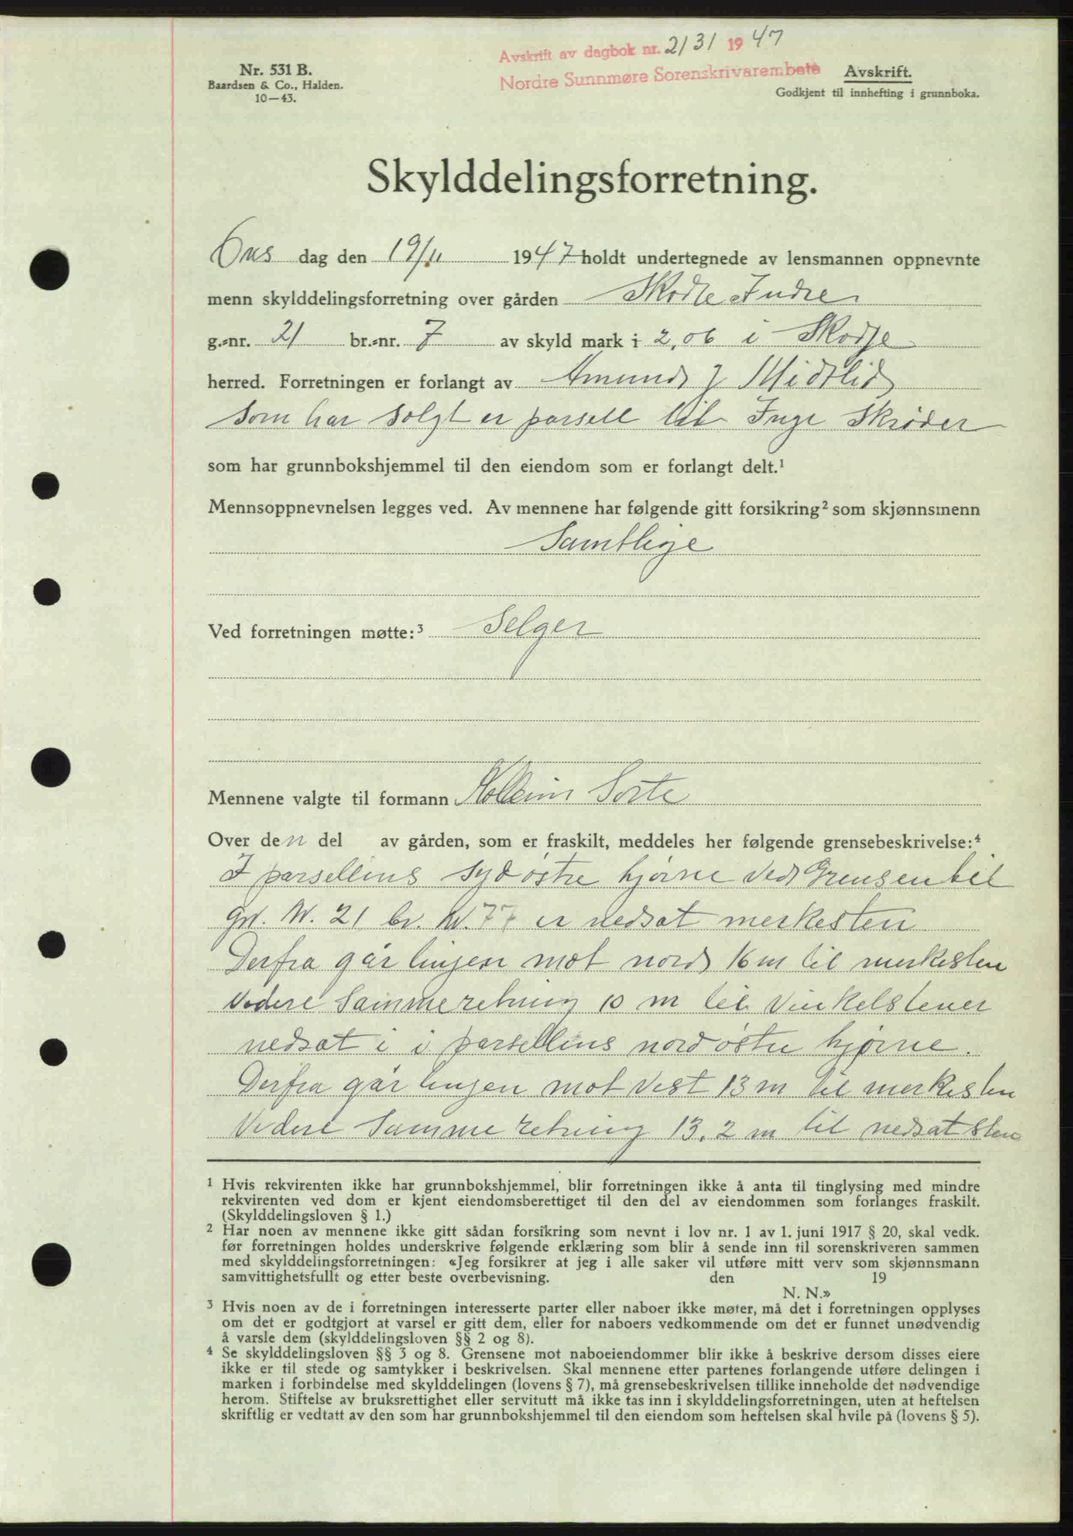 Avskrift av dagbok nr. 2131 1947
Nordre Sunnmøre Sorenskrivarembete
Nr. 531 B.
Baardsen & Co., Halden.
10—43.
Avskrift.
Godkjent til innhefting i grunnboka.
Skylddelingsforretning.
Ons dag den 19/11 1947 holdt undertegnede av lensmannen oppnevnte
menn skylddelingsforretning over gården Skodje Indre
g.-nr. 21 br.-nr. 7 av skyld mark 2,06 i Skodje
herred. Forretningen er forlangt av Amund J Midtlid
som har solgt er parsell til Inge Skrøder
som har grunnbokshjemmel til den eiendom som er forlangt delt.¹
Mennsoppnevnelsen legges ved. Av mennene har følgende gitt forsikring² som skjønnsmenn
Samtlige
Ved forretningen møtte:³ Selger
Mennene valgte til formann Sorte
Over den del av gården, som er fraskilt, meddeles her følgende grensebeskrivelse:⁴
I parsellens sydøstre hjørne ved Grensen til
gr. Nr. 21 br. Nr. 77 er nedsat merkesten
Derfra går linjen mot nord 16 m til merkesten
Videre Samme retning 10 m til Vinkelstener
nedsat i i parsellens nordøstre hjørne.
Derfra går linjen mot Vest 13 m til merkesten
Videre Samme retning 13,2 m til nedsat sten
1 Hvis rekvirenten ikke har grunnbokshjemmel, blir forretningen ikke å anta til tinglysing med mindre
rekvirenten ved dom er kjent eiendomsberettiget til den del av eiendommen som forlanges fraskilt.
(Skylddelingsloven § 1.)
2 Har noen av mennene ikke gitt sådan forsikring som nevnt i lov nr. 1 av 1. juni 1917 § 20, skal vedk.
før forretningen holdes underskrive følgende erklæring som blir å sende inn til sorenskriveren sammen
med skylddelingsforretningen: «Jeg forsikrer at jeg i alle saker vil utføre mitt verv som skjønnsmann
samvittighetsfullt og etter beste overbevisning. den 19
N. N.»
3 Hvis noen av de i forretningen interesserte parter eller naboer ikke møter, må det i forretningen opplyses
om det er godtgjort at varsel er gitt dem, eller for naboers vedkommende om det er funnet unødvendig
å varsle dem (skylddelingsloven §§ 2 og 8).
4 Se skylddelingsloven §§ 3 og 8. Grensene mot naboeiendommer blir ikke å beskrive dersom disses eiere
ikke er til stede og samtykker i beskrivelsen. Skal mennene etter partenes forlangende utføre delingen i
marken i forbindelse med skylddelingen (lovens § 7), må grensebeskrivelsen tillike inneholde det nødvendige
herom. Stiftelse av bruksrettighet eller servitutt må ikke tas inn i skylddelingsforretningen, uten at heftelsen
skriftlig er vedtatt av den som har grunnbokshjemmel til den eiendom som heftelsen skal hvile på (lovens § 5).